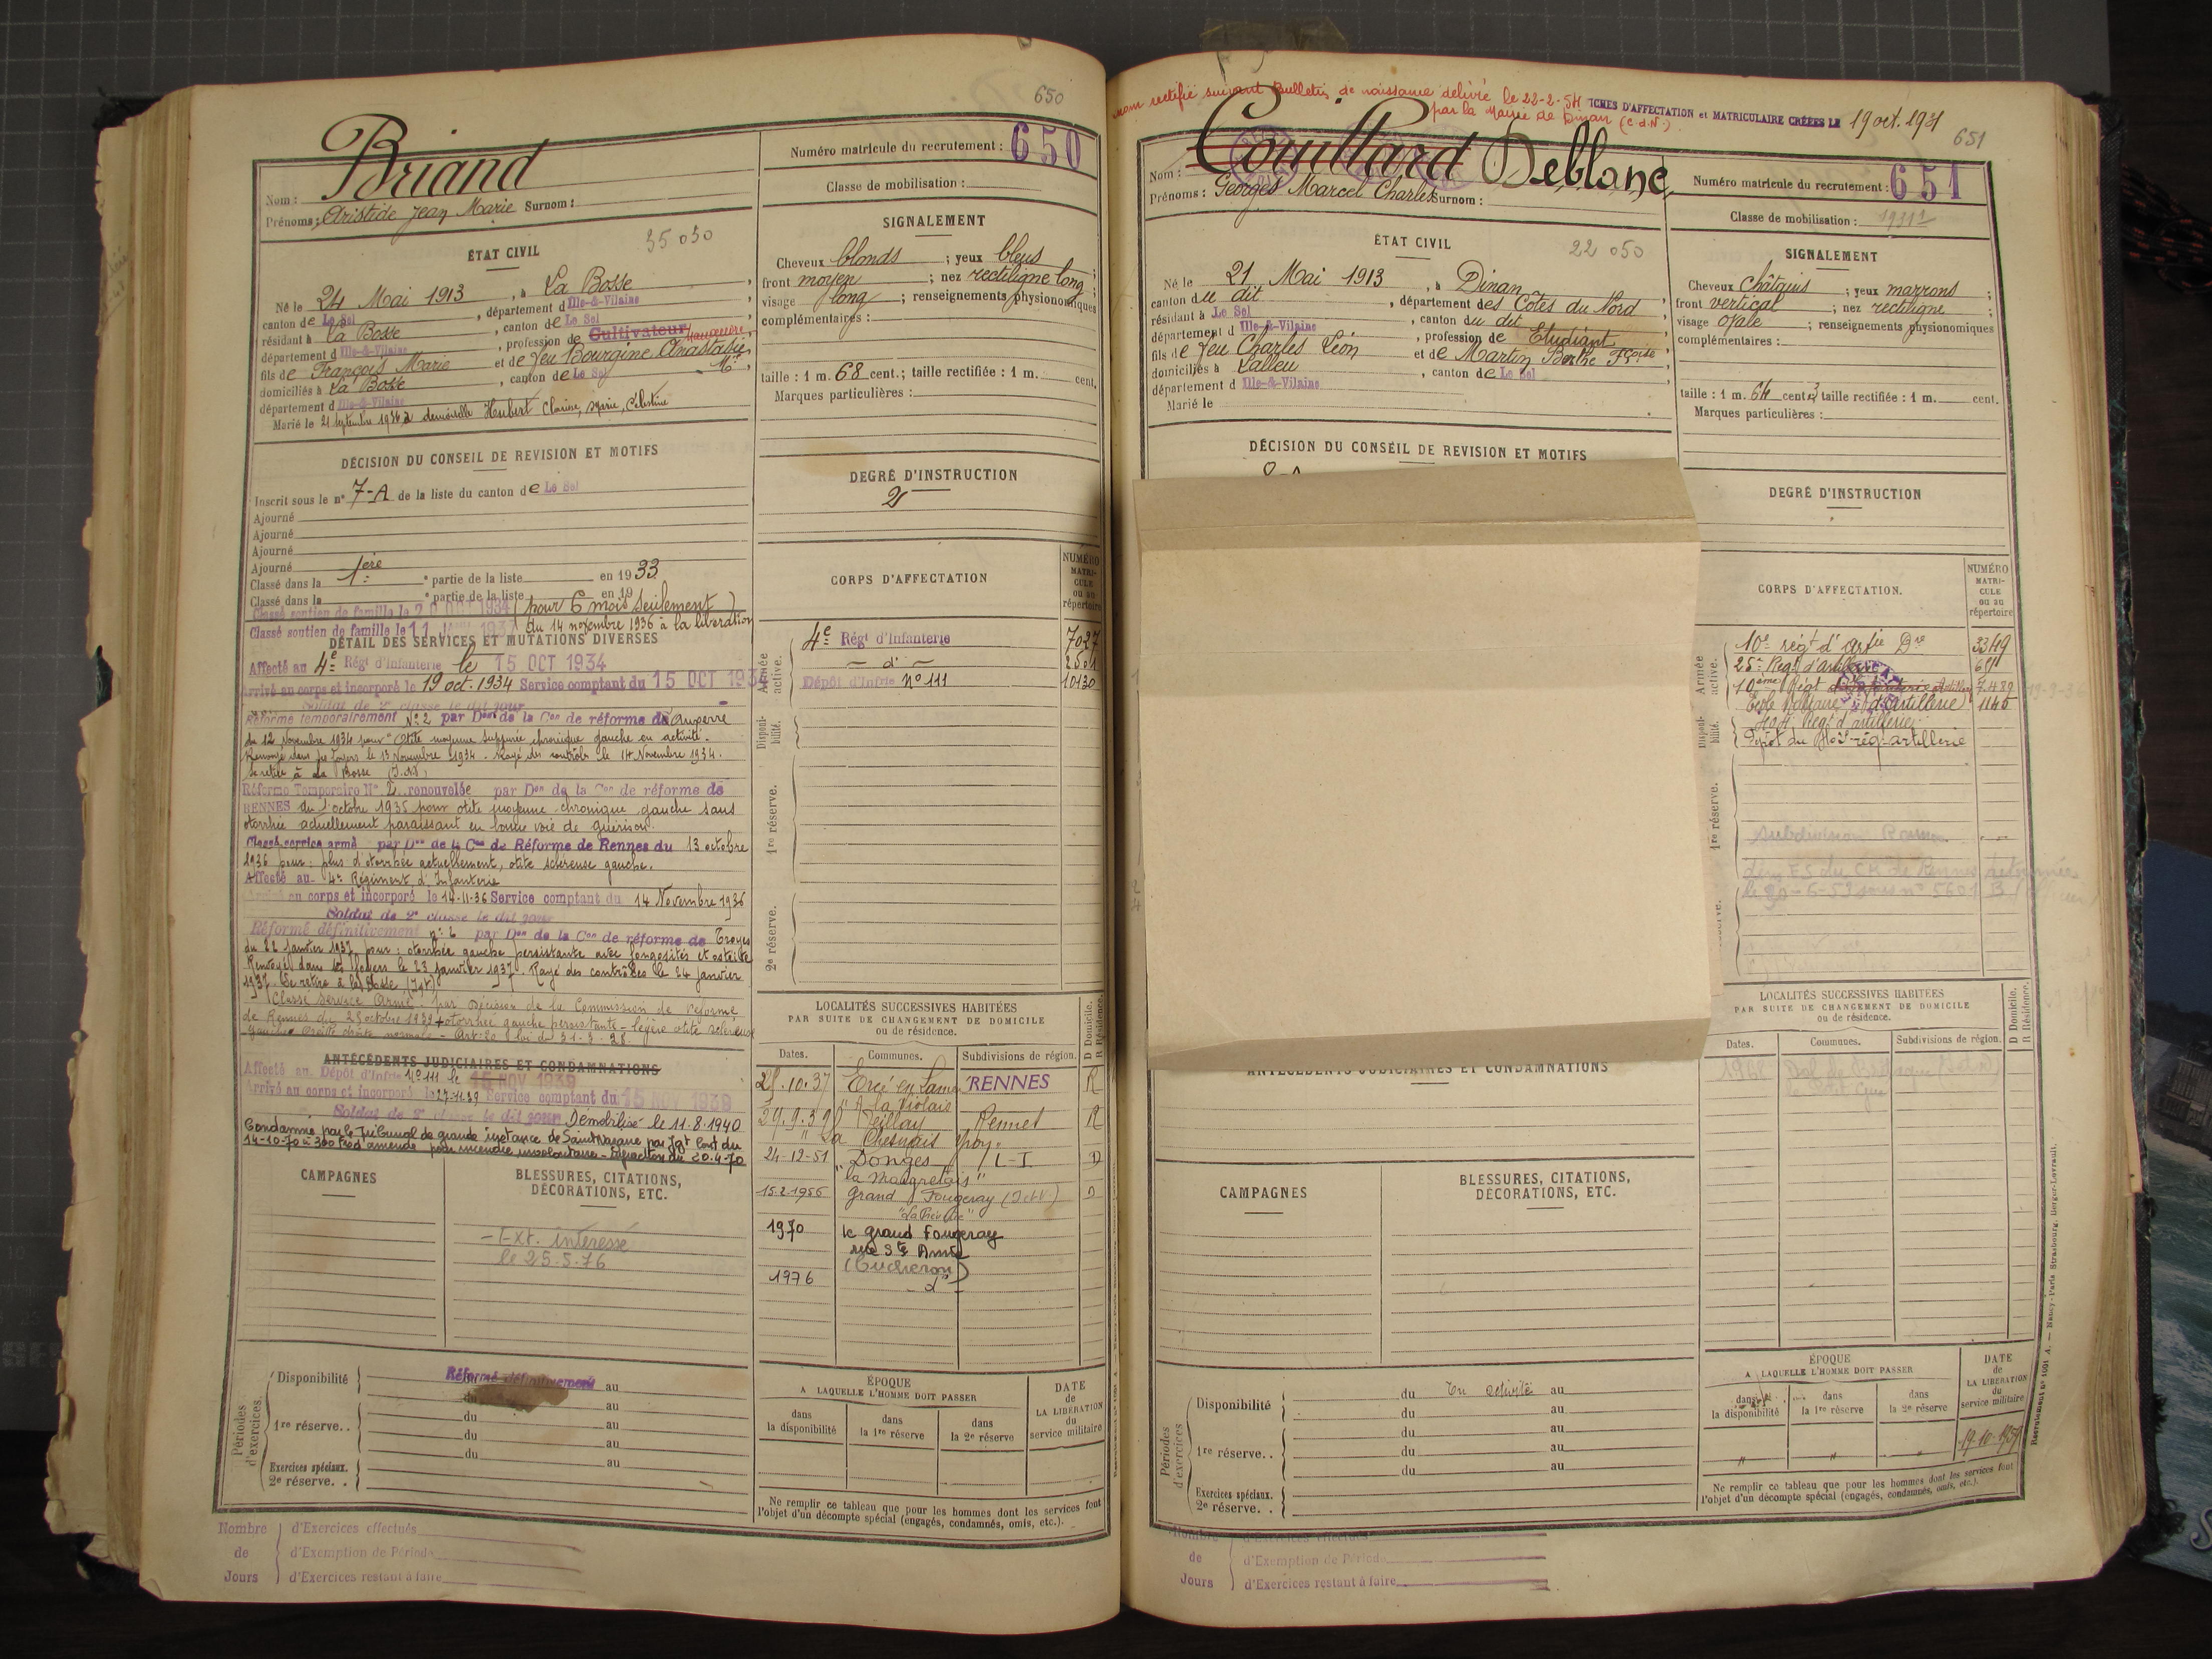 650
Briand
Nom :
Prénoms : Aristide Jean Marie Surnom :
Numéro matricule du recrutement : 650
Classe de mobilisation :
ÉTAT CIVIL
35 050
Né le 24 Mai 1913, à La Bosse,
canton de Le Sel, département d Ille-&-Vilaine
résidant à La Bosse, canton de Le Sel
département d Ille-&-Vilaine, profession de Cultivateur
fils de François Marie et de feu Bourgine Anastasie Mie
domiciliés à La Bosse, canton de Le Sel
département d Ille-&-Vilaine
Marié le 21 septembre 1936 à demoiselle Hubert Clarisse, Marie, Célestine
SIGNALEMENT
Cheveux blonds ; yeux bleus ;
front moyen ; nez rectiligne long ;
visage long ; renseignements physionomiques
complémentaires :
taille : 1 m. 68 cent.; taille rectifiée : 1 m. cent.
Marques particulières :
DÉCISION DU CONSEIL DE REVISION ET MOTIFS
Inscrit sous le n° 7-A de la liste du canton de Le Sel
Ajourné
Ajourné
Ajourné
Ajourné
Classé dans la 1ère partie de la liste en 1933
Classé dans la partie de la liste en 19
Classé soutien de famille le 20 OCT 1934 (pour 6 mois seulement)
Classé soutien de famille le 11 du 14 novembre 1936 à la libération
DEGRÉ D'INSTRUCTION
2
DÉTAIL DES SERVICES ET MUTATIONS DIVERSES
Affecté au 4e Régt d'Infanterie le 15 OCT 1934
Arrivé au corps et incorporé le 19 oct. 1934 Service comptant du 15 OCT 1934
Soldat de 2e classe le dit jour
Réformé temporairement N° 2 par Don de la Con de réforme de Auxerre
du 12 Novembre 1934 pour "Otite moyenne suppurée chronique gauche en activité.
Renvoyé dans ses foyers le 13 Novembre 1934. Rayé des contrôles le 14 Novembre 1934.
Se retire à La Bosse (I.&V.)
Réforme Temporaire N° 2 renouvelée par Don de la Con de réforme de
RENNES du 1 octobre 1935 pour otite moyenne chronique gauche sans
otorrhée actuellement paraissant en bonne voie de guérison.
Classé service armé par Don de la Con de Réforme de Rennes du 13 octobre
1936 pour : plus d'otorrhée actuellement, otite scléreuse gauche.
Affecté au 4e Régiment d'Infanterie
Arrivé au corps et incorporé le 14-11-36 Service comptant du 14 Novembre 1936
Soldat de 2e classe le dit jour
Réformé définitivement n° 2 par Don de la Con de réforme de Troyes
du 22 janvier 1937 pour : otorrhée gauche persistante avec fongosités et ostéite
Renvoyé dans ses foyers le 23 janvier 1937. Rayé des contrôles le 24 janvier
1937. Se retire à La Bosse (I&V)
Classé Service Armé par Décision de la Commission de Réforme
de Rennes du 25 octobre 1939 otorrhée gauche persistante - légère otite scléreuse
gauche oreille droite normale - Art. 20 loi du 31-3-28.
ANTÉCÉDENTS JUDICIAIRES ET CONDAMNATIONS
Affecté au Dépôt d'Infrie N° 111 le 15 NOV 1939
Arrivé au corps et incorporé le 27.11.39 Service comptant du 15 NOV 1939
Soldat de 2e classe le dit jour Démobilisé le 11.8.1940
Condamné par le Tribunal de grande instance de Saint Nazaire par Jgt Cont du
14-10-70 à 300 Frs d'amende pour incendie involontaire - Infraction du 20.4.70
CORPS D'AFFECTATION
NUMÉRO MATRICULE ou au répertoire
Armée active.
4e Régt d'Infanterie 7027
- d° -
Dépôt d'Infrie N° 111 10130
Disponibilité.
1re réserve.
2e réserve.
LOCALITÉS SUCCESSIVES HABITÉES
PAR SUITE DE CHANGEMENT DE DOMICILE
ou de résidence.
D Domicile. R Résidence.
Dates. Communes. Subdivisions de région.
28.10.37 Ercé en Lamée RENNES R
"A la Violais
29.9.39 Teillay Rennes R
"La Chesnais
24-12-51 Donges L-I D
15.2.1956 Grand Fougeray (I&V) D
1970 le grand Fougeray
rue Ste Anne
(Bucheron)
1976 - d° -
CAMPAGNES
BLESSURES, CITATIONS,
DÉCORATIONS, ETC.
- Ext. intéressé
le 25.5.76
Périodes d'exercices.
Disponibilité Réformé définitivement au
du au
1re réserve. . du au
du au
du au
Exercices spéciaux.
2e réserve. .
ÉPOQUE
A LAQUELLE L'HOMME DOIT PASSER
dans la disponibilité
dans la 1re réserve
dans la 2e réserve
DATE de LA LIBÉRATION du service militaire
Ne remplir ce tableau que pour les hommes dont les services font
l'objet d'un décompte spécial (engagés, condamnés, omis, etc.).
Nombre de Jours
d'Exercices effectués
d'Exemption de Période
d'Exercices restant à faire
nom rectifié suivant Bulletin de naissance délivré le 22-2-54
par la Mairie de Dinan (C.d.N.)
FICHES D'AFFECTATION et MATRICULAIRE CRÉÉES LE 19 oct. 1931
651
Couillard Deblanc
Nom :
Prénoms : Georges Marcel Charles Surnom :
Numéro matricule du recrutement : 651
Classe de mobilisation : 1931
ÉTAT CIVIL
22 050
Né le 21 Mai 1913, à Dinan
canton du dit, département des Côtes du Nord
résidant à Le Sel, canton du dit
département d Ille-&-Vilaine, profession de Etudiant
fils de feu Charles Léon et de Martin Berthe Fçoise
domiciliés à Lalleu, canton de Le Sel
département d Ille-&-Vilaine
Marié le
SIGNALEMENT
Cheveux châtains ; yeux marrons ;
front vertical ; nez rectiligne ;
visage ovale ; renseignements physionomiques
complémentaires :
taille : 1 m. 64 cent. ; taille rectifiée : 1 m. cent.
Marques particulières :
DÉCISION DU CONSEIL DE REVISION ET MOTIFS
DEGRÉ D'INSTRUCTION
CORPS D'AFFECTATION.
NUMÉRO MATRICULE ou au répertoire
Armée active.
10e rég d'artie Dre 3349
25e Régt d'artillerie
10ème Régt d'Infanterie Artillerie 7.489
Ecole Militaire d'Artillerie 1145
404 Régt d'artillerie
Dépôt du rég artillerie
Disponibilité.
1re réserve.
LOCALITÉS SUCCESSIVES HABITÉES
PAR SUITE DE CHANGEMENT DE DOMICILE
ou de résidence.
D Domicile. R Résidence.
Dates. Communes. Subdivisions de région.
1968 Dol de Bretagne
ANTÉCÉDENTS JUDICIAIRES ET CONDAMNATIONS
CAMPAGNES
BLESSURES, CITATIONS,
DÉCORATIONS, ETC.
Périodes d'exercices
Disponibilité du En activité au
du au
1re réserve. . du au
du au
du au
Exercices spéciaux.
2e réserve. .
ÉPOQUE
A LAQUELLE L'HOMME DOIT PASSER
dans la disponibilité
dans la 1re réserve
dans la 2e réserve
DATE de LA LIBÉRATION du service militaire
Ne remplir ce tableau que pour les hommes dont les services font
l'objet d'un décompte spécial (engagés, condamnés, omis, etc.).
Nombre de Jours
d'Exercices effectués
d'Exemption de Période
d'Exercices restant à faire